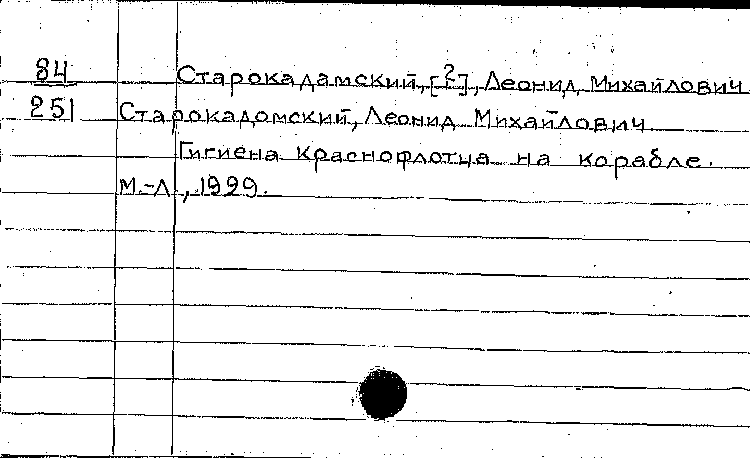 84 Старокадамский, [2], Леонид Михайлович
251 Старокадомский, Леонид Михайлович
Гигиена краснофлотца на корабле.
М.-Л., 1999.